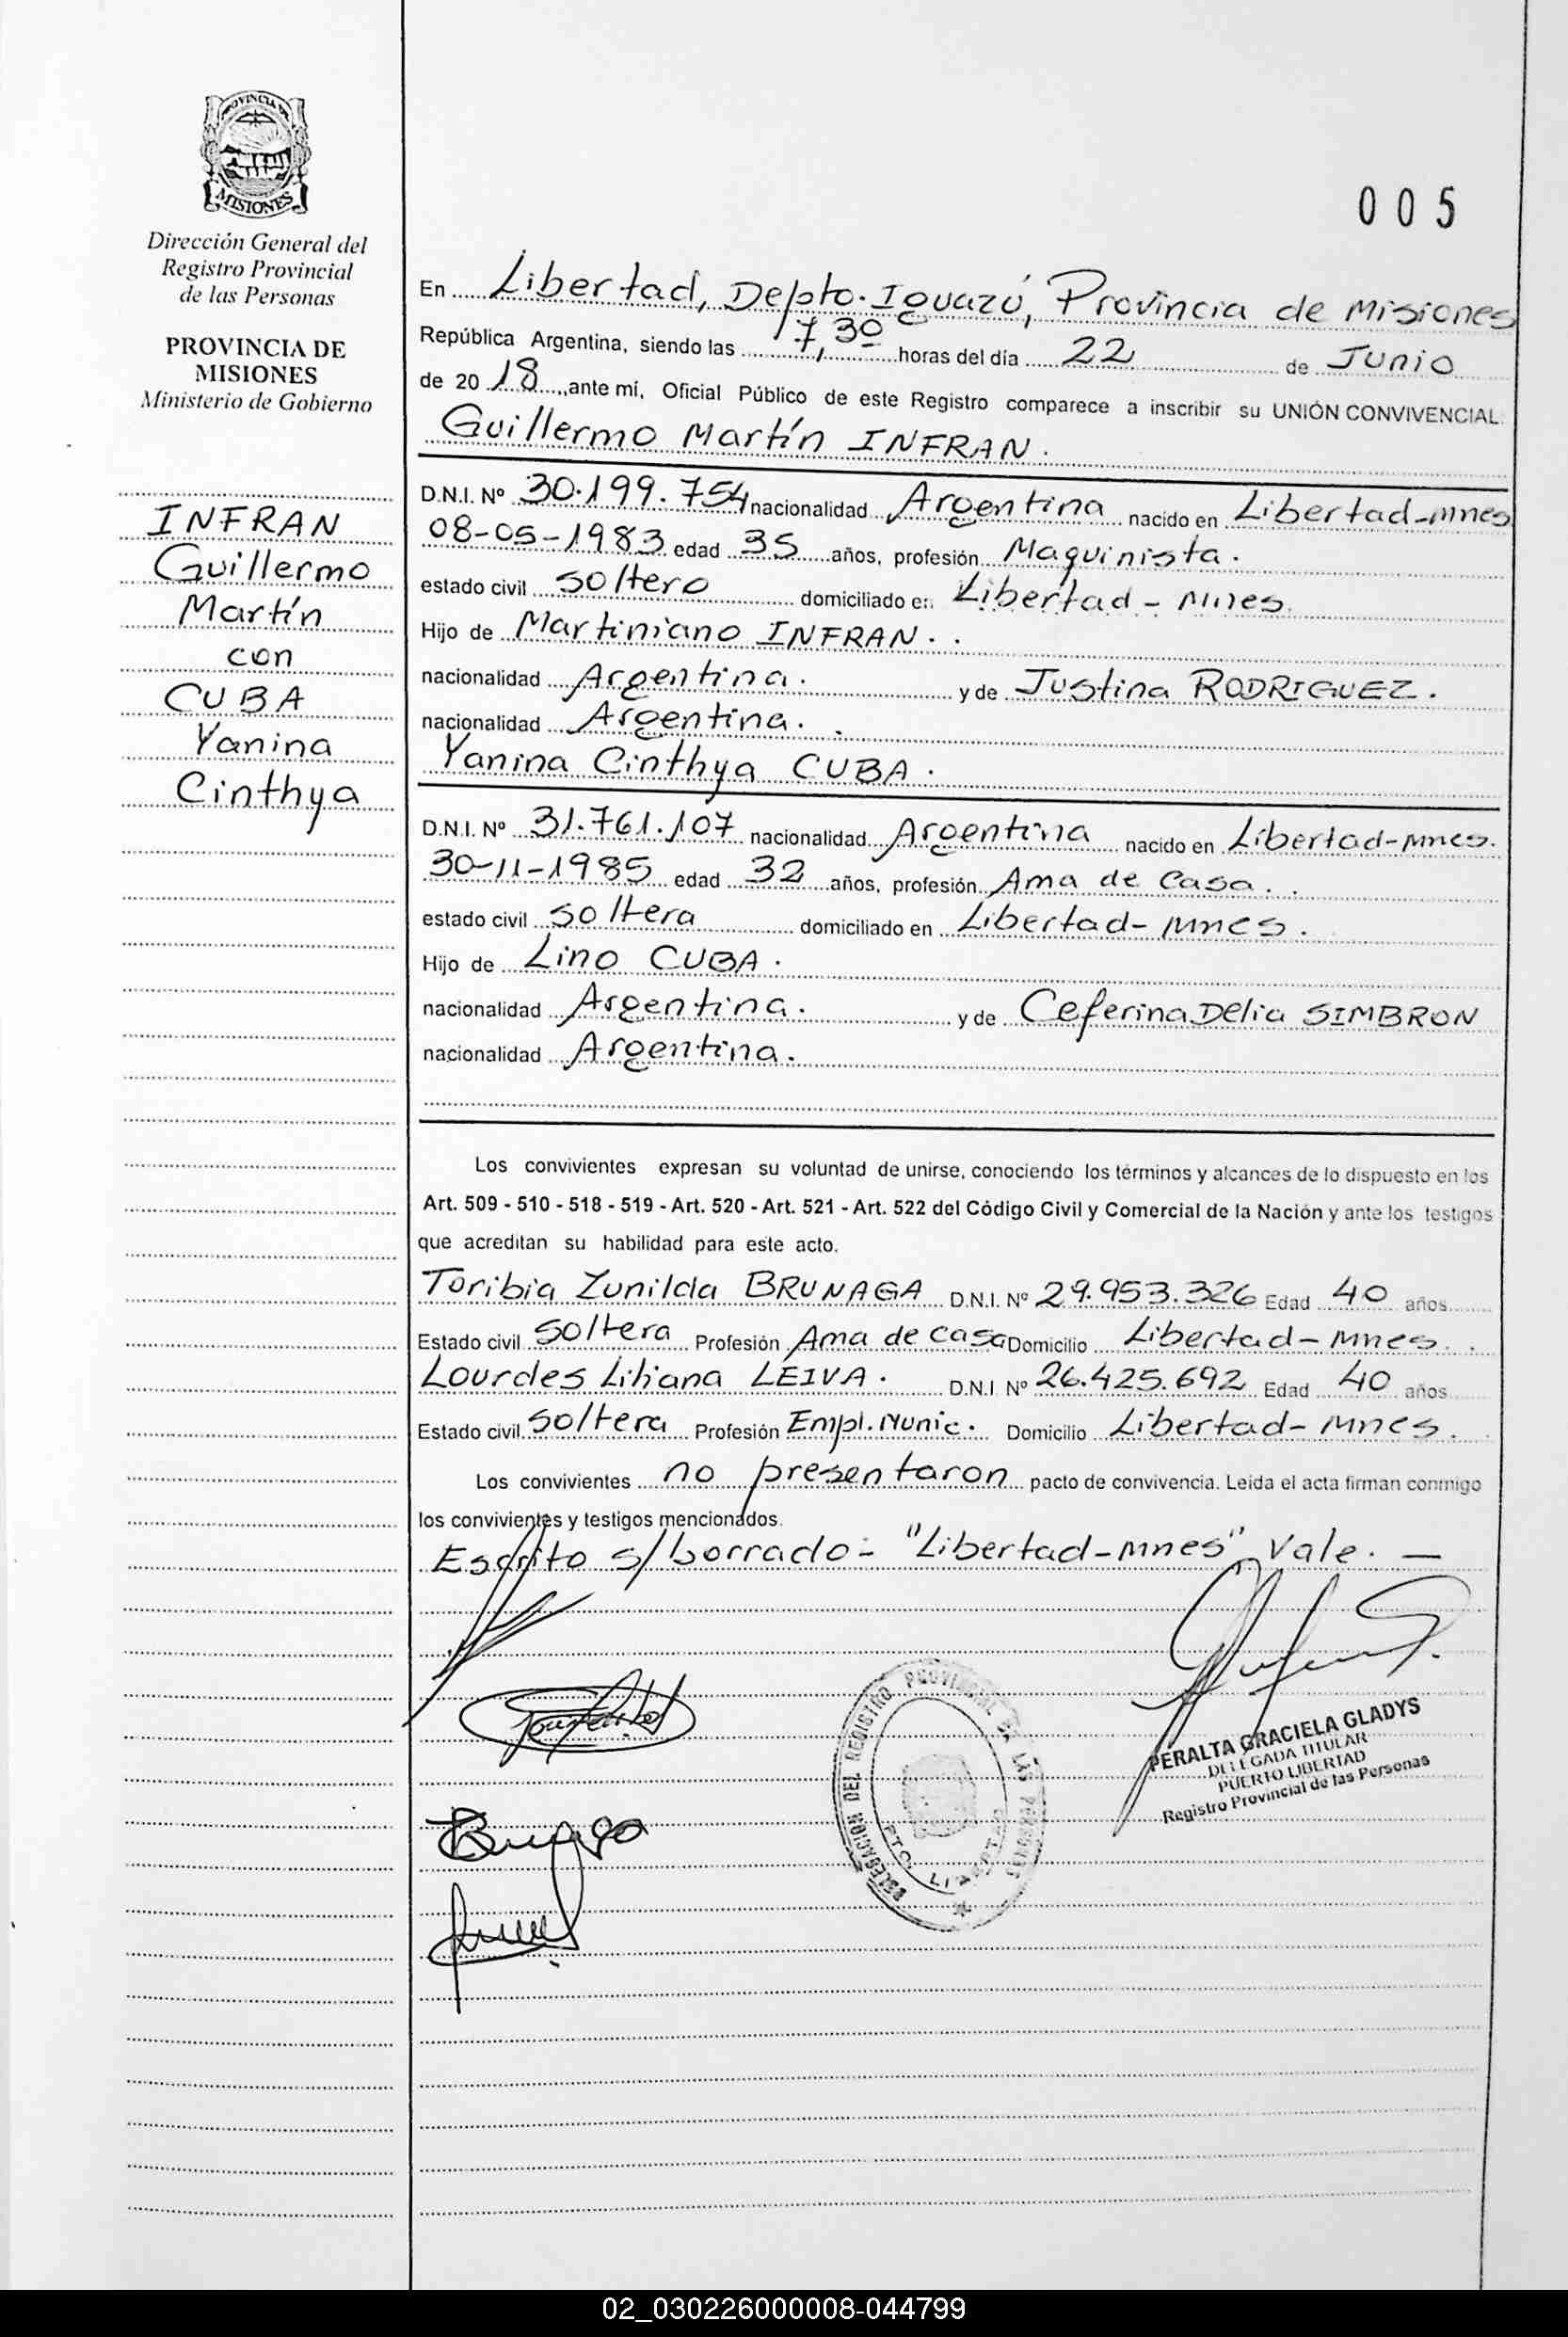 PROVINCIA DE
MISIONES
Dirección General del
Registro Provincial
de las Personas
PROVINCIA DE
MISIONES
Ministerio de Gobierno
INFRAN
Guillermo
Martín
con
CUBA
Yanina
Cinthya
005
En Libertad, Depto. Iguazú, Provincia de Misiones
República Argentina, siendo las 7,30 horas del día 22 de Junio
de 2018, ante mí, Oficial Público de este Registro comparece a inscribir su UNIÓN CONVIVENCIAL:
Guillermo Martín INFRAN.
D.N.I. Nº 30.199.754 nacionalidad Argentina nacido en Libertad-Mnes
08-05-1983 edad 35 años, profesión Maquinista.
estado civil soltero domiciliado en Libertad - Mnes
Hijo de Martiniano INFRAN.
nacionalidad Argentina. y de Justina RODRIGUEZ.
nacionalidad Argentina.
Yanina Cinthya CUBA.
D.N.I. Nº 31.761.107 nacionalidad Argentina nacido en Libertad-Mnes.
30-11-1985 edad 32 años, profesión Ama de Casa.
estado civil soltera domiciliado en Libertad- Mnes.
Hijo de Lino CUBA.
nacionalidad Argentina. y de Ceferina Delia SIMBRON
nacionalidad Argentina.
Los convivientes expresan su voluntad de unirse, conociendo los términos y alcances de lo dispuesto en los
Art. 509 - 510 - 518 - 519 - Art. 520 - Art. 521 - Art. 522 del Código Civil y Comercial de la Nación y ante los testigos
que acreditan su habilidad para este acto.
Toribia Zunilda BRUNAGA D.N.I. Nº 29.953.326 Edad 40 años
Estado civil soltera Profesión Ama de casa Domicilio Libertad- Mnes.
Lourdes Liliana LEIVA. D.N.I Nº 26.425.692 Edad 40 años
Estado civil soltera Profesión Empl. Munic. Domicilio Libertad- Mnes.
Los convivientes no presentaron pacto de convivencia. Leída el acta firman conmigo
los convivientes y testigos mencionados.
Escrito s/borrado- "Libertad-Mnes" Vale. —
DELEGACION DEL REGISTRO PROVINCIAL DE LAS PERSONAS
PTO. LIBERTAD
PERALTA GRACIELA GLADYS
DELEGADA TITULAR
PUERTO LIBERTAD
Registro Provincial de las Personas
02_030226000008-044799